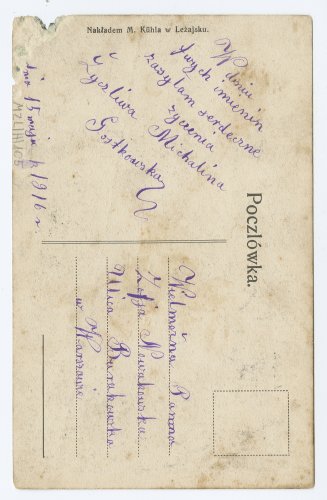 Nakładem M. Kühla w Leżajsku.
W dniu
Twych imienin
zasyłam serdeczne
życzenia
Życzliwa Michalina
Gostkowska
dnia 15 maja 1916 r
Pocztówka.
Wielmożna Panna
Zofja Nowakowska
Ulica Burakowska
w Warszawie